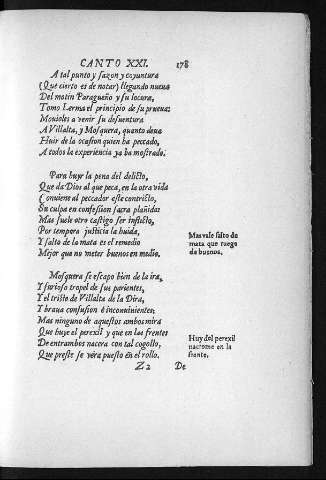 CANTO XXI. 178
A tal punto y sazon y coyuntura
(Que cierto es de notar) llegando nueua
Del motin Paragueño y su locura,
Tomo Lerma el principio de su prueua:
Mouioles a venir su desuentura
A Villalta, y Mosquera, quanto deua
Huir de la ocasion quien ha peccado,
A todos la experiencia ya ha mostrado.
Para huyr la pena del delicto,
Que da Dios al que peca, en la otra vida
Conuiene al peccador este contricto,
Su culpa en confession sacra plañida:
Mas suele otro castigo ser inflicto,
Por tempora justicia la huida,
Y salto de la mata es el remedio
Mejor que no meter buenos en medio.
Mas vale salto de
mata que ruego
de buenos.
Mosquera se escapo bien de la ira,
Y furioso tropel de sus parientes,
Y el tristo de Villalta de la Dira,
Y braua confusion è inconuinientes:
Mas ninguno de aquestos ambos mira
Que huye el perexil y que en las frentes
De entrambos nacera con tal cogollo,
Que preste se vera puesto en el rollo.
Huy del perexil
nacióme en la
frente.
Z2 De